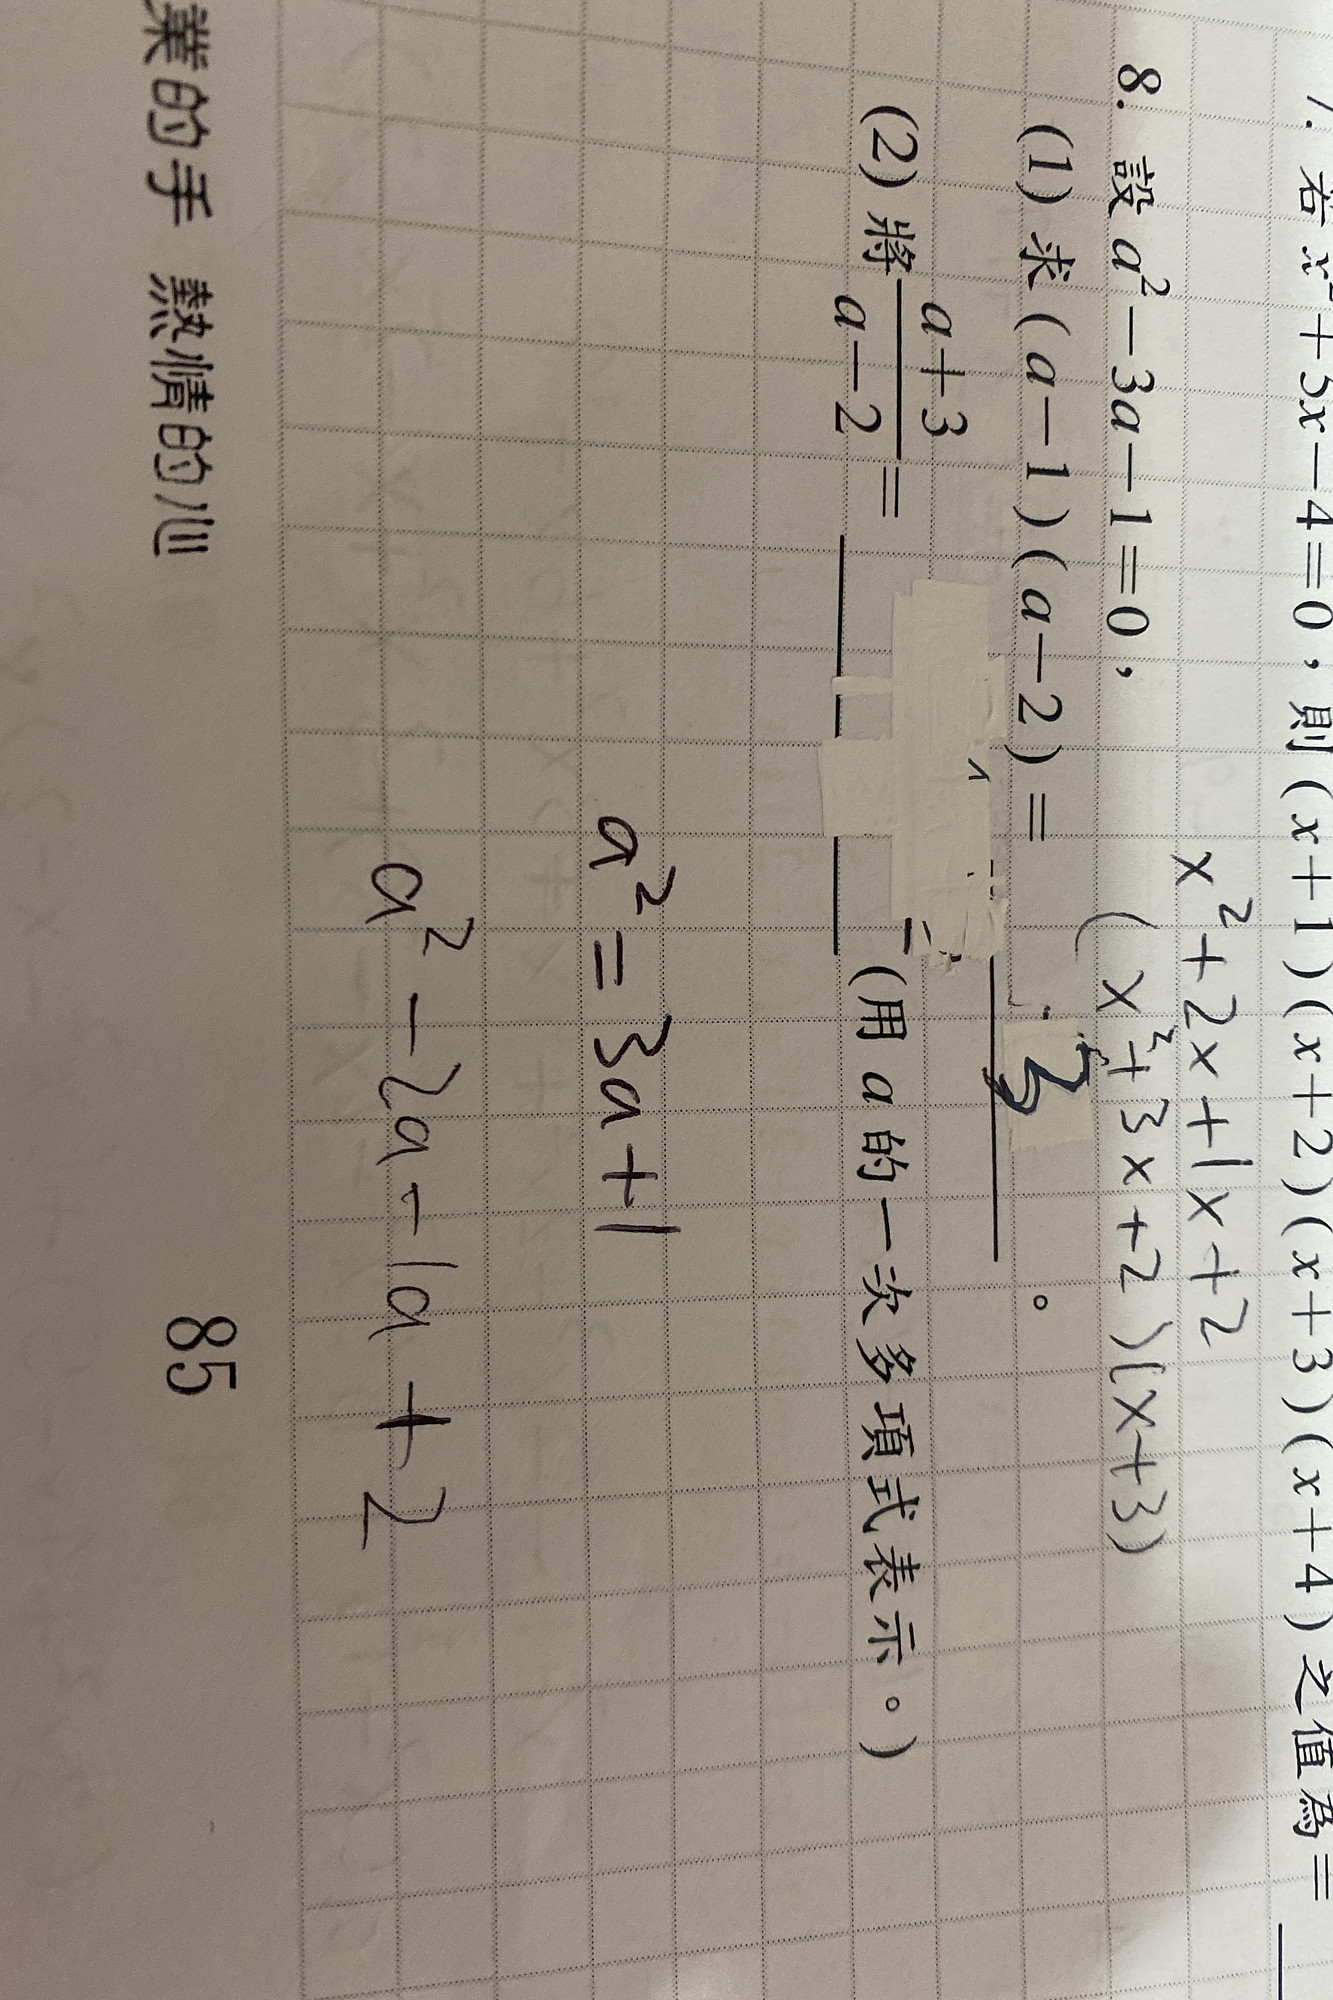 7. 若x²+5x−4=0，則(x+1)(x+2)(x+3)(x+4)之值為=
x²+2x+1x+2
(x²+3x+2)(x+3)
8. 設a²−3a−1=0，
(1) 求(a−1)(a−2)= 3 。
(2) 將 a+3/a−2 = (用a的一次多項式表示。)
a²=3a+1
a²−2a−1a+2
業的手 熱情的心 85